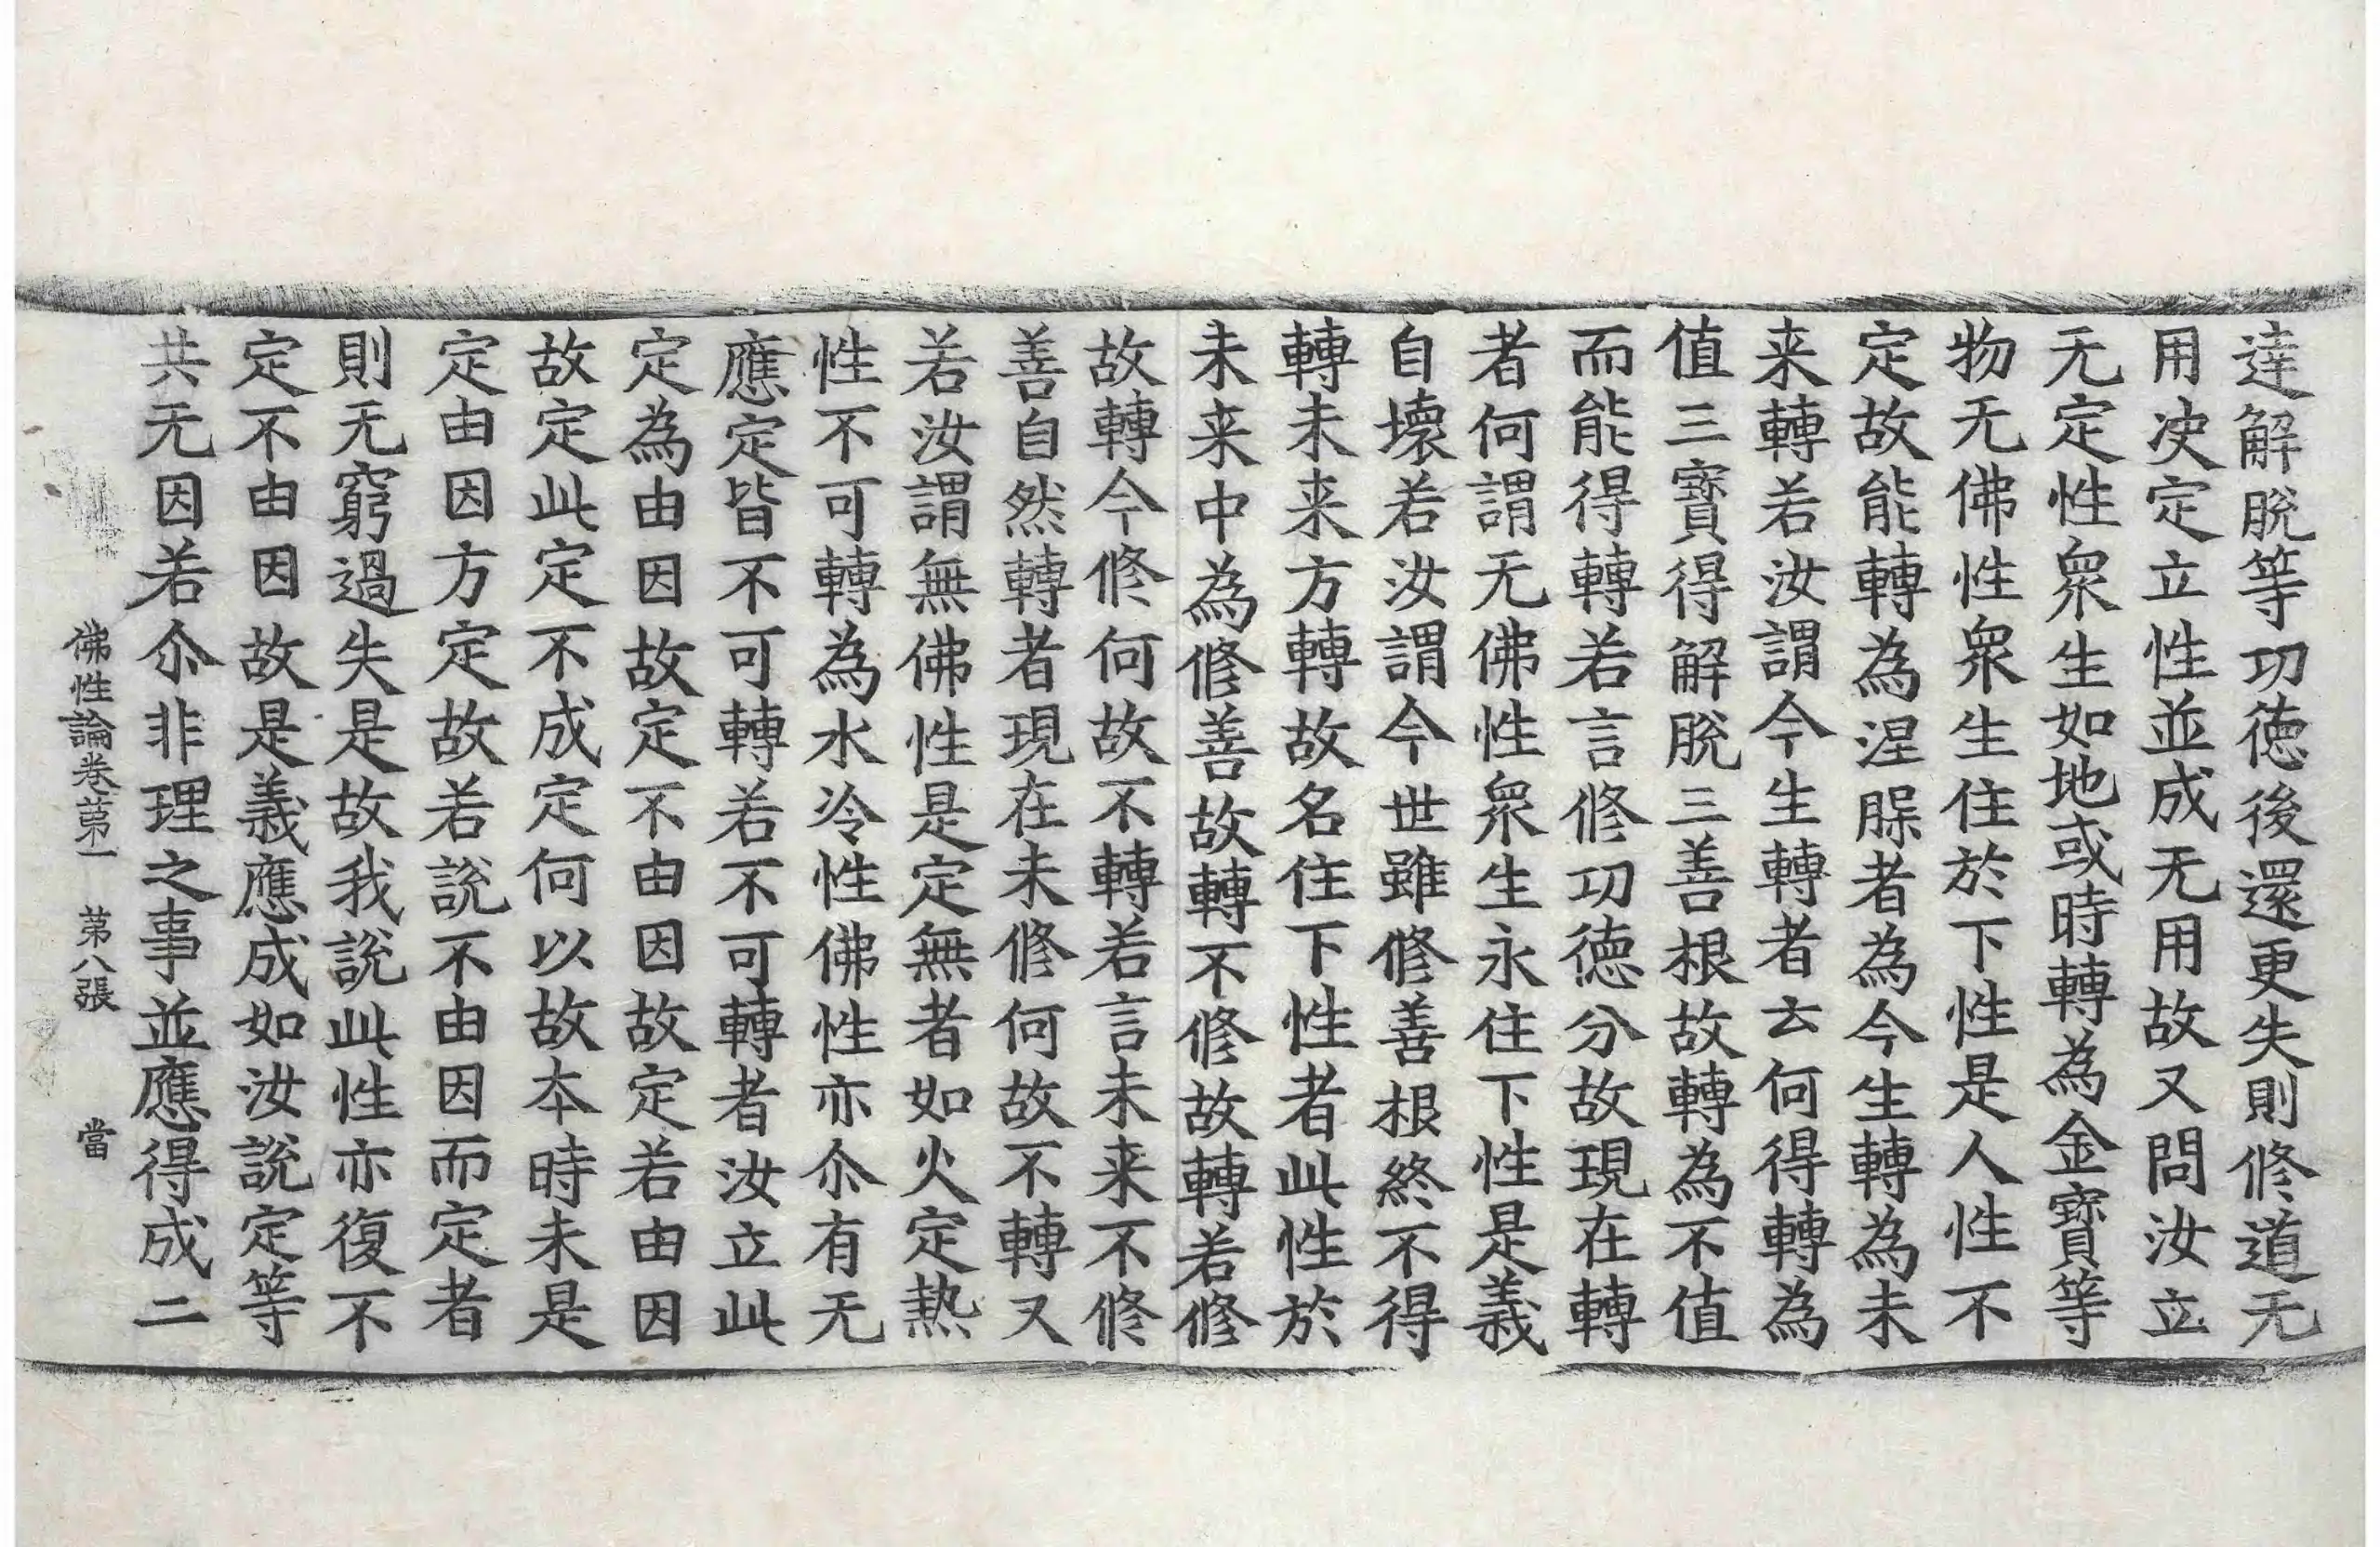 達解脫等功德後還更失則修道无
用决定立性並成无用故又問汝立
无定性衆生如地或時轉為金寶等
物无佛性衆生住於下性是人性不
定故能轉為涅槃者為今生轉為未
来轉若汝謂今生轉者云何得轉為
值三寶得解脫三善根故轉為不值
而能得轉若言修功德分故現在轉
者何謂无佛性衆生永住下性是義
自壞若汝謂今世雖修善根終不得
轉未来方轉故名住下性者此性於
未来中為修善故轉不修故轉若修
故轉今修何故不轉若言未来不修
善自然轉者現在未修何故不轉又
若汝謂無佛性是定無者如火定熱
性不可轉為水冷性佛性亦尒有无
應定皆不可轉若不可轉者汝立此
定為由因故定不由因故定若由因
故定此定不成定何以故本時未是
定由因方定故若說不由因而定者
則无窮過失是故我說此性亦復不
定不由因故是義應成如汝說定等
共无因若尒非理之事並應得成二
佛性論卷苐一　苐八張　當